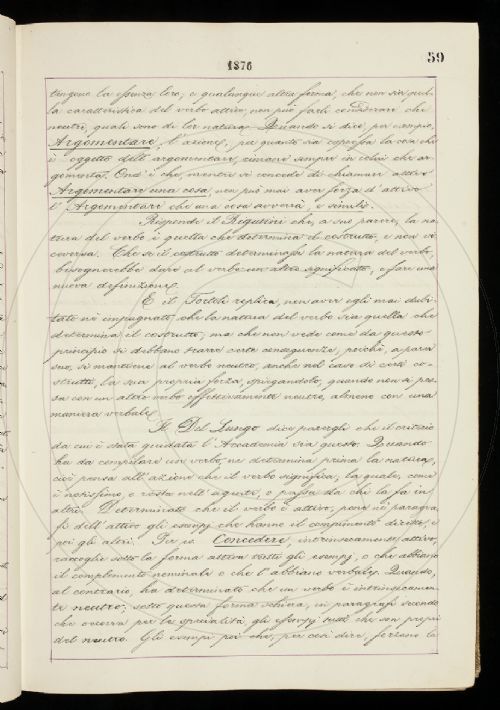 1876
59
tengono la essenza loro; e qualunque altra forma, che non sia quel-
la caratteristica del verbo attivo, non può farli considerare che
neutri, quali sono di lor natura. Quando si dice, per esempio,
Argomentare, l'azione, per quanto sia espressa la cosa che
è oggetto dell'argomentare, rimane sempre in colui che ar-
gomenta. Ond'è che, mentre si concede di chiamar attivo
Argomentare una cosa, non può mai aver forza d'attivo
l'Argomentare che una cosa avverrà, e simili.
Risponde il Rigutini che, a suo parere, la na-
tura del verbo è quella che determina il costrutto, e non vi-
ceversa. Che se il costrutto determinasse la natura del verbo,
bisognerebbe dare al verbo un altro significato, e fare una
nuova definizione.
E il Tortoli replica, non aver egli mai dubi-
tato nè impugnato che la natura del verbo sia quella che
determina il costrutto; ma che non vede come da questo
principio si debbano trarre certe conseguenze, perchè, a parer
suo, si mantiene al verbo neutro, anche nel caso di certi co-
strutti, la sua propria forza, spiegandolo, quando non si pos-
sa con un altro verbo effettivamente neutro, almeno con una
maniera verbale.
Il Del Lungo dice parergli che il criterio
da cui è stata guidata l'Accademia sia questo. Quando
ha da compilare un verbo, ne determina prima la natura,
cioè pensa all'azione che il verbo significa, la quale, come
è notissimo, o resta nell'agente, o passa da chi la fa in
altri. Determinato che il verbo è attivo, pone nei paragra-
fi dell'attivo gli esempj che hanno il compimento diretto, e
poi gli altri. Per es. Concedere, intrinsecamente attivo,
raccoglie sotto la forma attiva tutti gli esempj, o che abbiano
il complemento nominale o che l'abbiano verbale. Quando,
al contrario, ha determinato che un verbo è intrinsecamen-
te neutro, sotto questa forma schiera, in paragrafi secondo
che occorra per le specialità, gli esempj tutti che son propri
del neutro. Gli esempi poi che, per così dire, forzano la